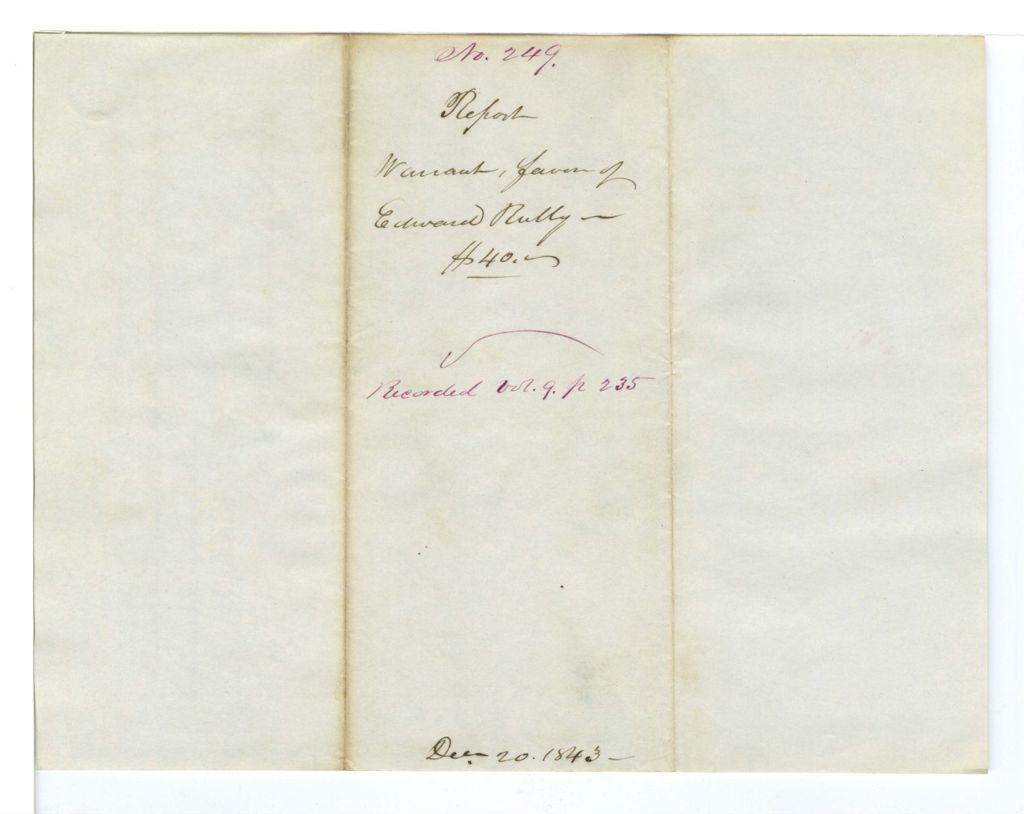 No. 249.
Report
Warrant, favor of
Edward Rully —
$40.
Recorded vol. 9. p 235
Dec. 20. 1843 —